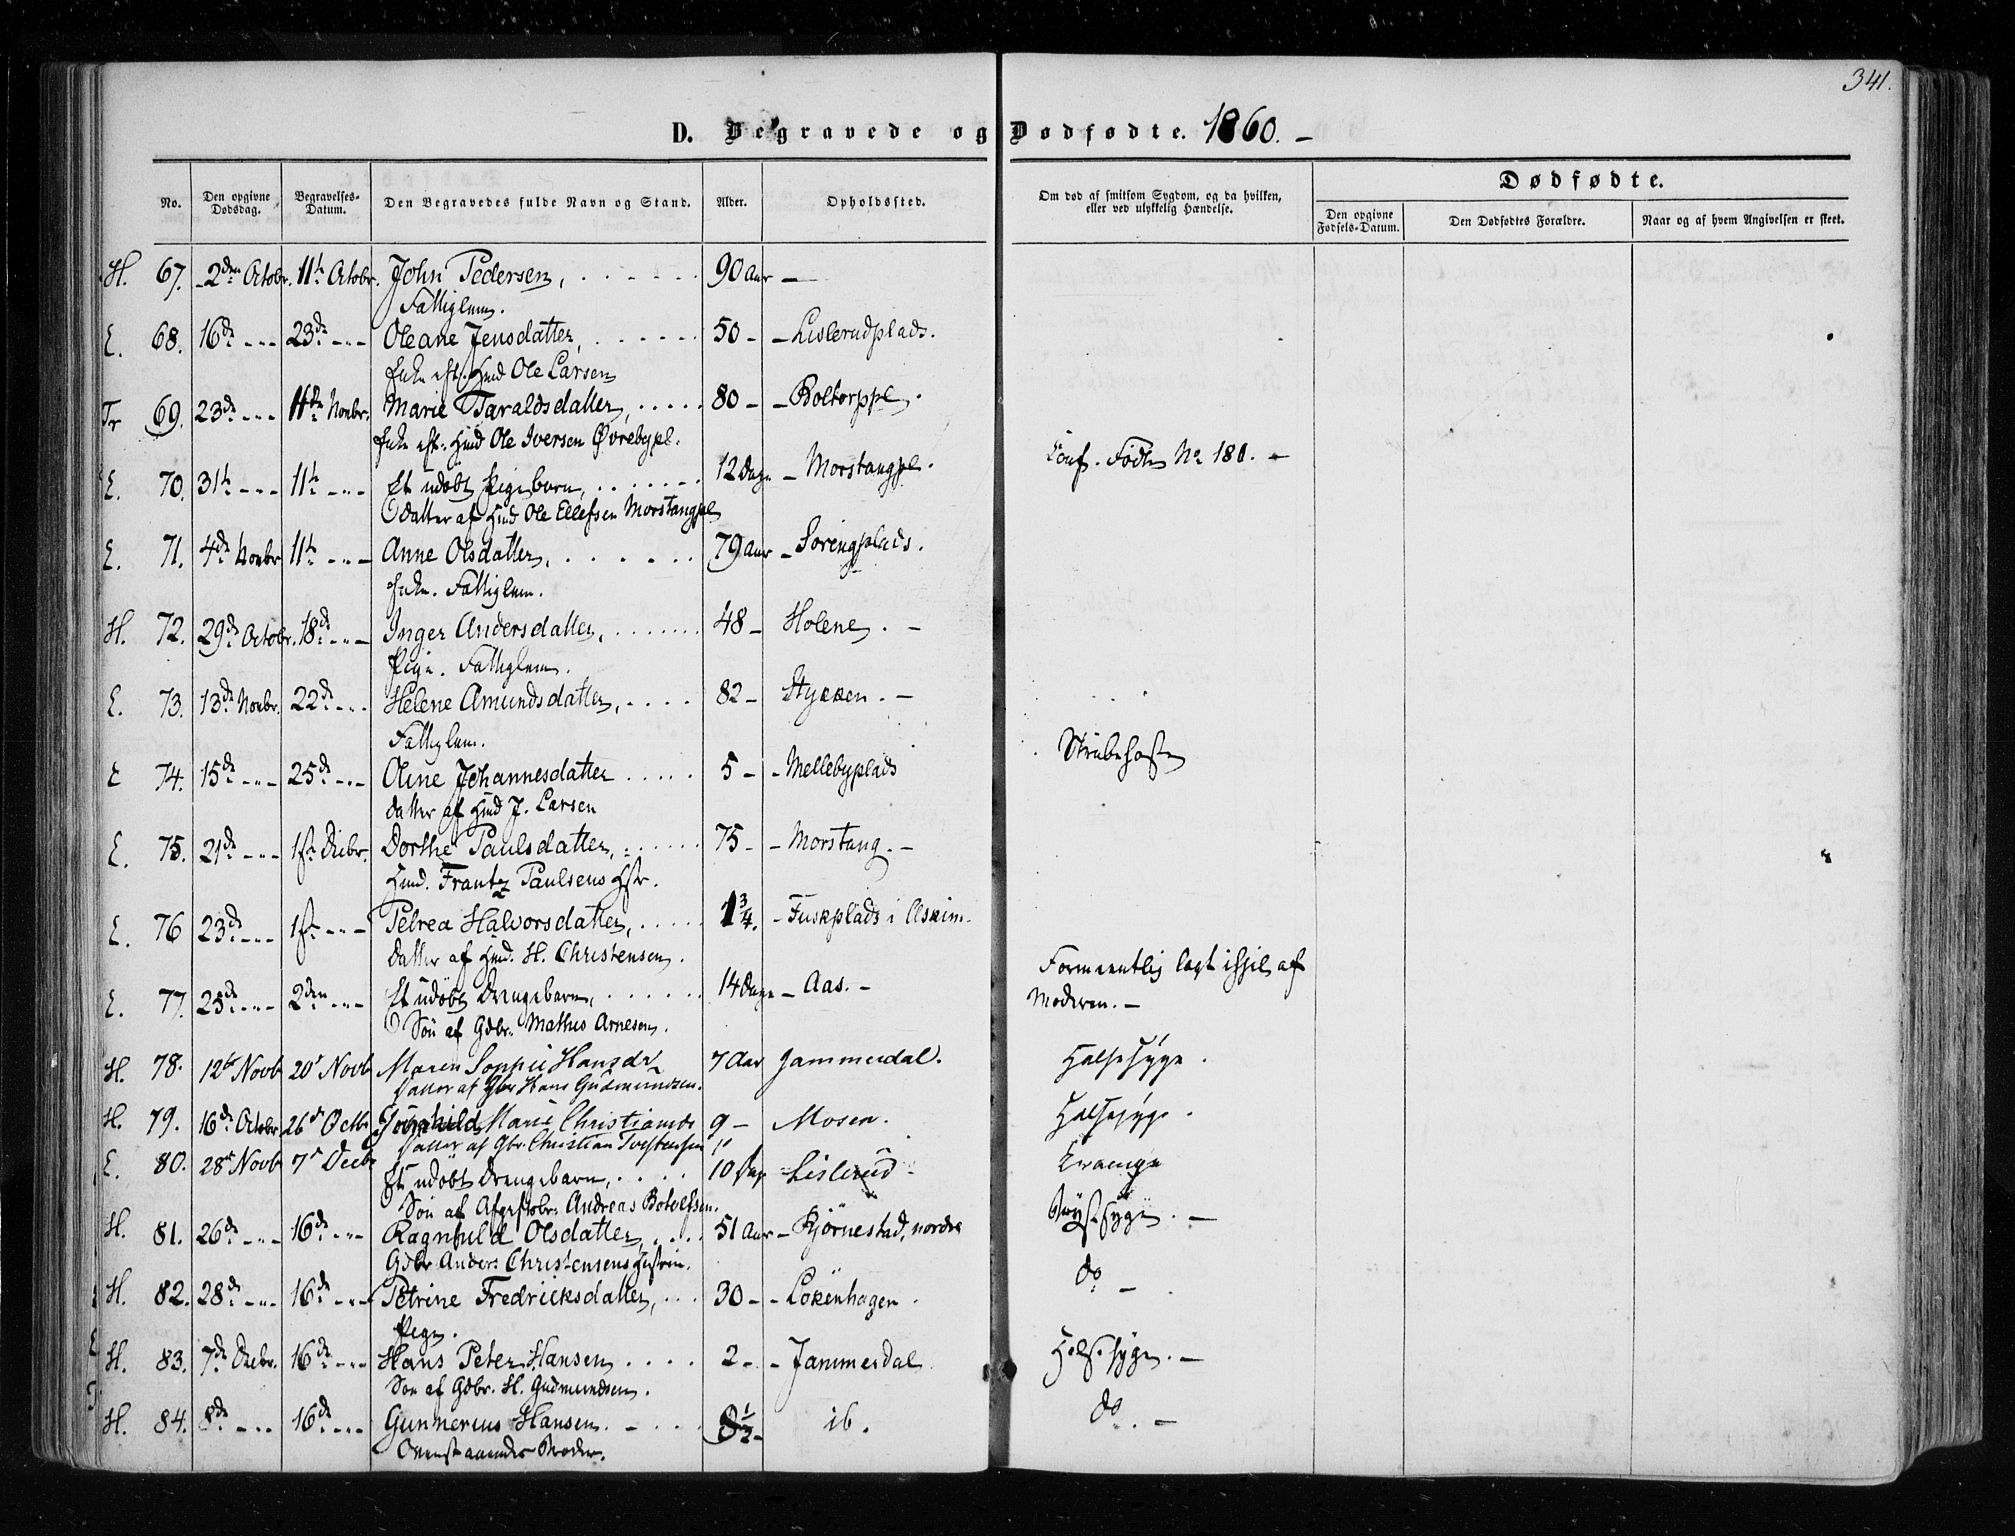 341.
D. Begravede og Dødfødte. 1860. –
No.
Den opgivne Dødsdag.
Begravelses-Datum.
Den Begravedes fulde Navn og Stand.
Alder.
Opholdssted.
Om død af smitsom Sygdom, og da hvilken, eller ved ulykkelig Hændelse.
Dødfødte.
Den opgivne Fødsels-Datum.
Den Dødfødtes Forældre.
Naar og af hvem Angivelsen er skeet.
H. 67. 2den Octobr. 11te Octobr. John Pedersen, 90 Aar –
Fattiglem.
E. 68. 16de - " - 23de - " - Oleane Jensdatter, 50 - - Lislerudplads.
Enke eft. Hmd Ole Larsen
Tr 69. 23de - " - 11te Novbr. Marie Taraldsdatter, 80 - - Boltorppl.
Enke eft. Hmd Ole Iversen Øvrebypl.
E. 70. 31te - " - 11te - " - Et udøbt Pigebarn, 12 Dage - Morstangpl. Conf. Fødte No 180. –
Datter af Hmd Ole Ellefsen Morstangpl
E. 71. 4de Novbr 11te - " - Anne Olsdatter, 79 Aar - Sørengplads.
Enke. Fattiglem.
H. 72. 29de Octobr. 18de - " - Inger Andersdatter, 48 - Holene. –
Pige. Fattiglem.
E. 73. 13de Novbr. 22de - " - Helene Amundsdatter, 82 - Stykken. –
Fattiglem.
E 74. 15de - " - 25de - " - Oline Johannesdatter 5 - - Mellebyplads Strubehoste
Datter af Hmd J. Larsen
E. 75. 21de - " - 1ste Decbr. Dorthe Paulsdatter, 75 - - Morstang. –
Hmd. Frantz Paulsens Hstr.
E. 76 23de - " - 1ste - " - Petrea Halvorsdatter, 1 3/4. - Fuskplads i Askim.
Datter af Hmd. H. Christensen.
E. 77. 25de - " - 2den - " - Et udøbt Drengebarn, 14 Dage - Aas. – Formeentlig lagt ihjel af
Moderen. –
Søn af Gdbr. Mathis Arnesen.
H. 78. 12te Novb 20de Novb Maren Sophie Hansdr 7 Aar Jammerdal. Halssyge.
Datter af Gbr Hans Gudmundsen.
H. 79. 16de Octobr 26de Octb Gunhild Marie Christiansd 9 - Mosen. Halssyge.
Datter af Gbr. Christian Torstensen
E. 80. 28de Novb 7de Decbr Et udøbt Drengebarn, 10 Dage Lislerud Krampe
Søn af Andreas Botolfsen.
H. 81. 26de - " - 16de - " - Ragnhild Olsdatter, 51 Aar - Bjørnestad, nordre Brystsyge. –
Gdbr Anders Christensens Hustru.
H. 82. 28de - " - 16de - " - Petrine Fredriksdatter, 30 - - Løkenhagen. do –
Pige.
H. 83. 7de Decbr. 16de - " - Hans Peter Hansen 2 - - Jammerdal Halssyge. –
Søn af Gdbr. H. Gudmundsen.
H. 84. 8de - " - 16de - " - Gunnerius Hansen. 8 1/2 - ib. do. –
Ovenstaaendes Broder.